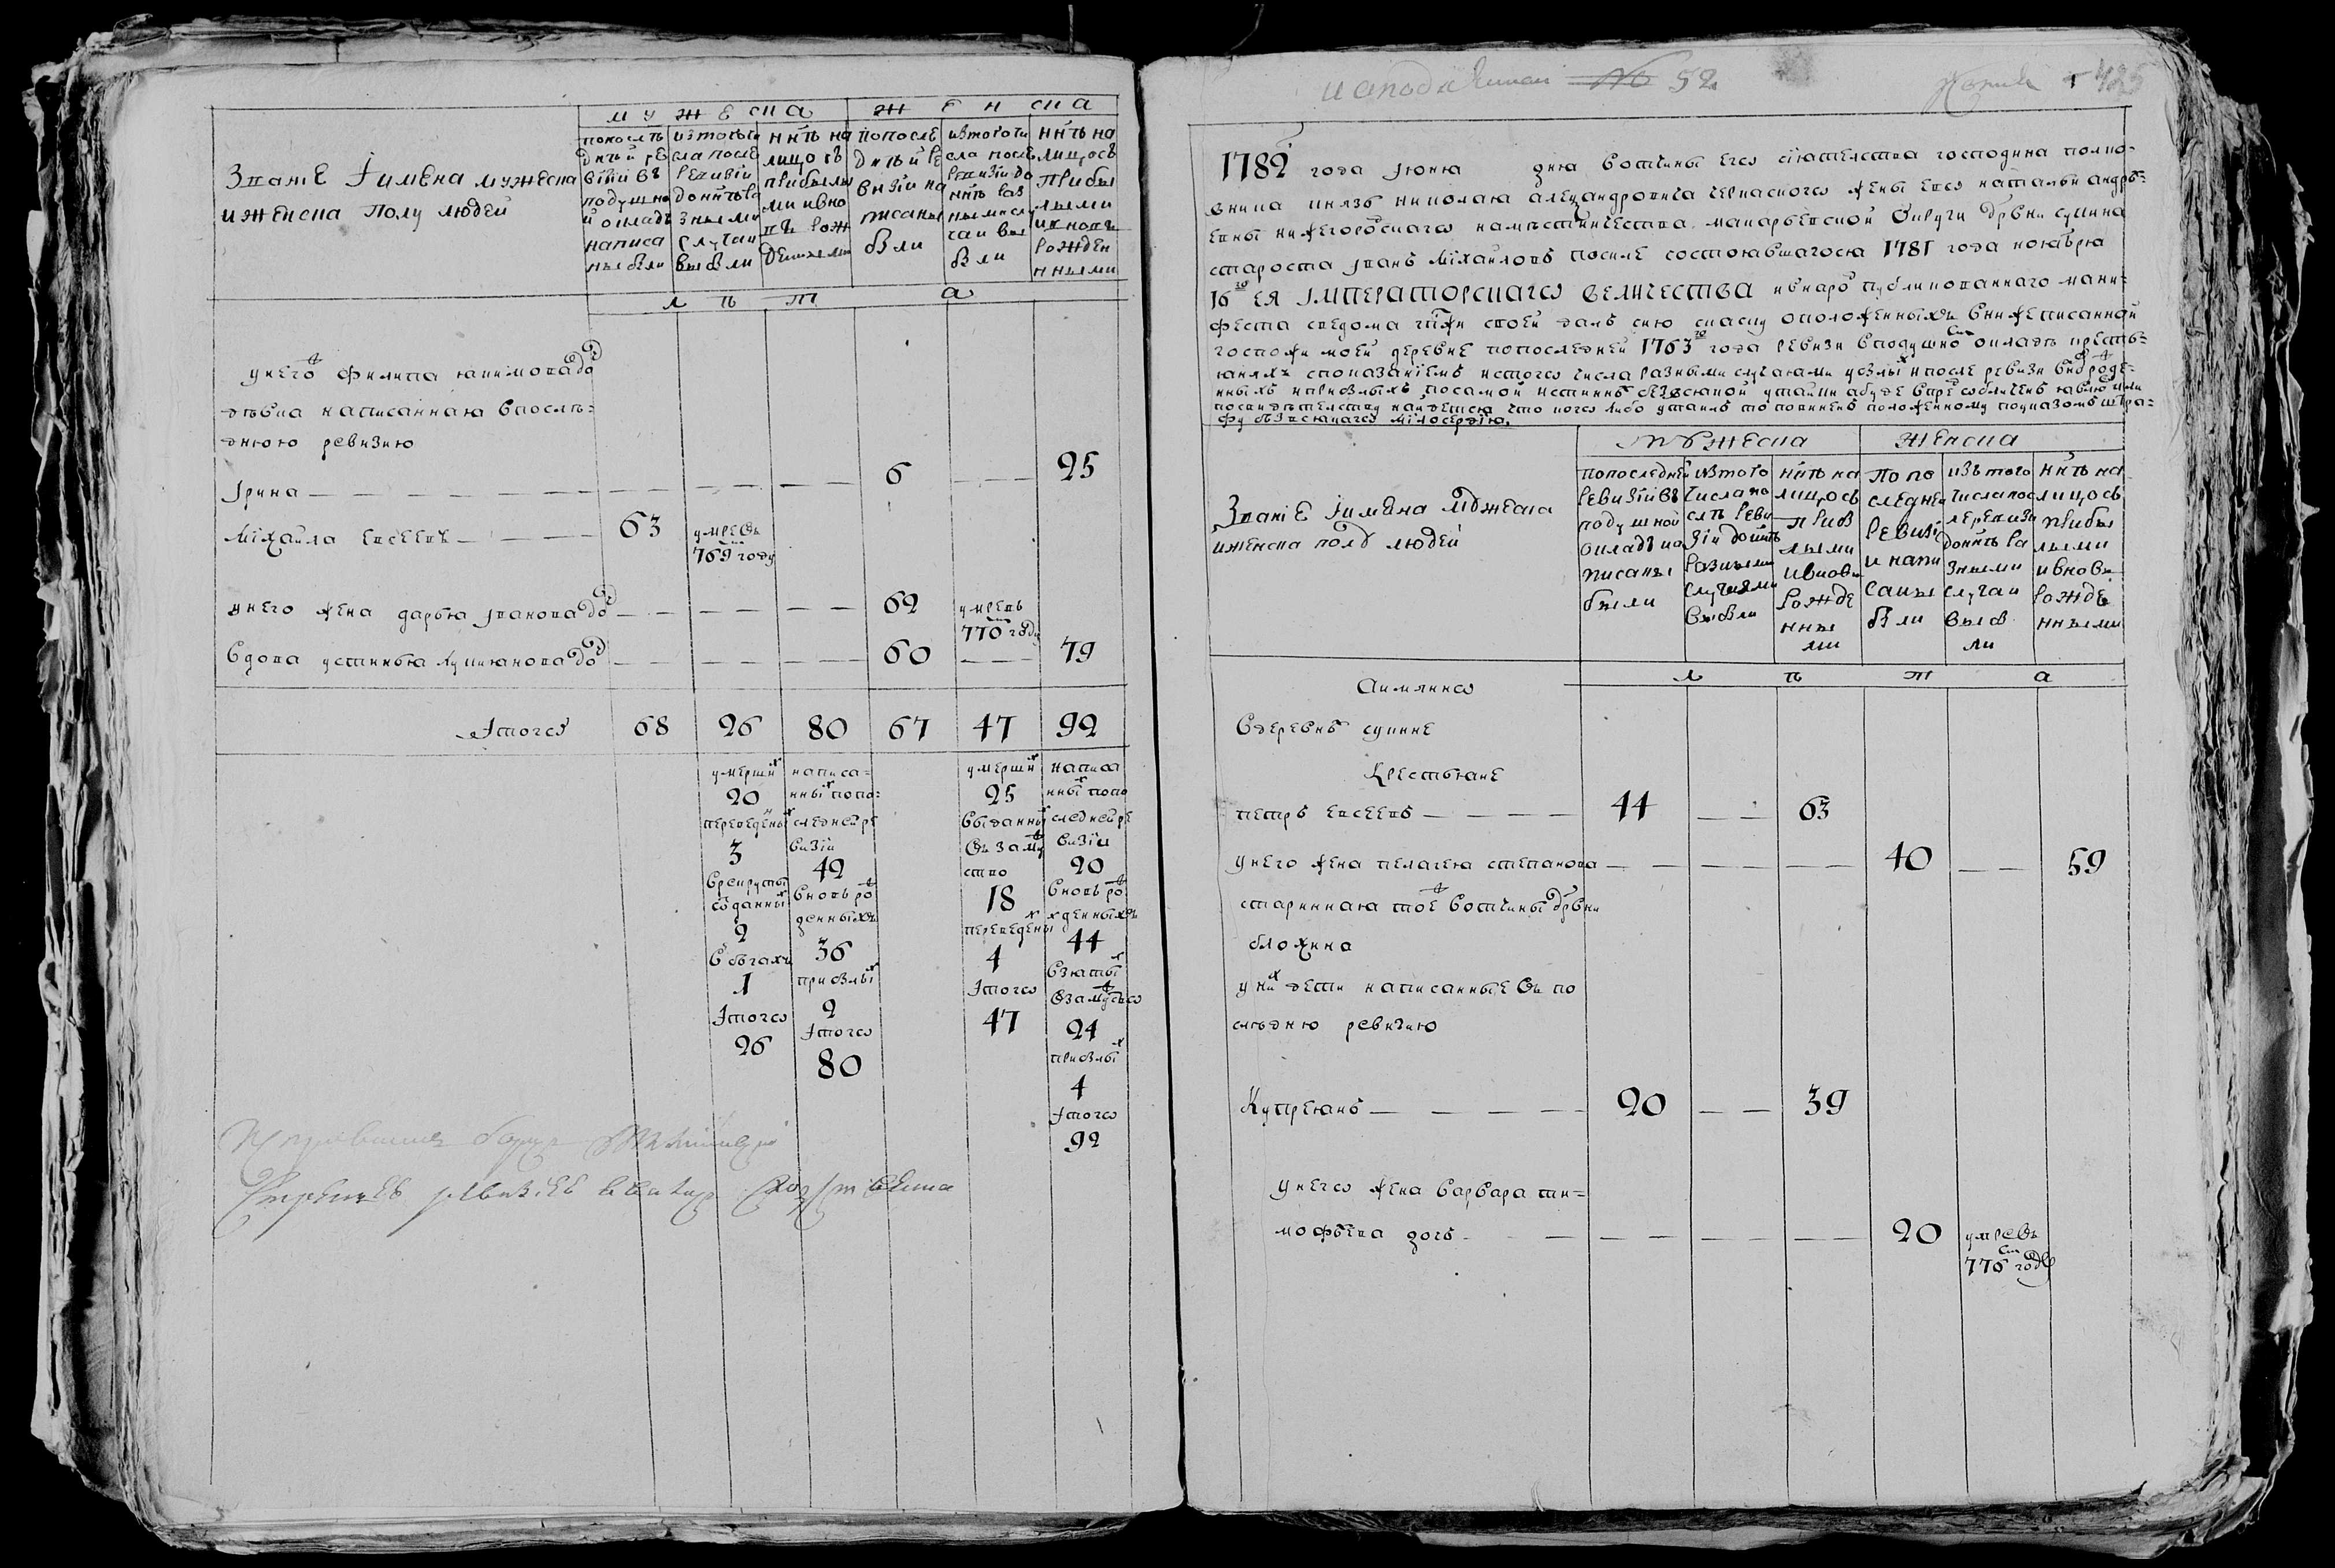 мужеска женска
Звание Iимена мужеска
иженска полу людей
попослѣ
дней ре
визiи въ
подушно
й окладъ
написа
ны были
изтого чи
сла после
ревизiи
донынѣ ра
зными
случаи
выбли
нынѣ на
лицо съ
прибылы
ми ивно
вь рож
денными
попосле
дней ре
визiи на
писаны
бли
изтого чи
сла после
ревизiи до
нынѣ раз
ными слу
чаи вы
бли
нынѣ на
лицо съ
прибы
лыми
ивновь
рожден
нными
лѣта
унего филипа якимова до
дѣвка написанная впослѣ=
днюю ревизию
Iрина 6 25
Мiхайла евсеевъ 63 умре въ
769 году
унего жена дарья иванова до 62 умре въ
770 году
вдова устинья лукиянова до 60 79
Iтого 68 26 80 67 47 92
умерши
20
переведены
3
врекруты
отданны
2
вбегахъ
1
Iтого
26
написа=
нны попо=
следней ре
визiи
42
вновь ро
жденныхъ
36
прибылы
2
Iтого
80
умерши
25
выданны
въ заму
ство
18
переведены
4
Iтого
47
написа
нны попо
следней ре
визiи
20
вновь ро
жденныхъ
44
взяты
взамужьсо
24
прибылы
4
Iтого
92
№ 52
1782 года Iюня дня вотчины его сиятельства господина полко=
вника князь николая алеѯандровича черкаского жены ево натальи андре=
евны нижегороцкаго намѣстничества макарьевской округи дрвни сукина
староста Iванъ Мiхайловъ посиле состоявшагося 1781 года ноября
16го ЕЯ IМПЕРАТОРСКАГО ВЕЛИЧЕСТВА ивнаро публикованнаго мани=
феста сведома гпжи своей далъ сию скаску оположенныхъ внижеписанной
госпожи моей деревне попоследней 1763го года ревизи вподушно окладъ кресть=
яняхъ споказаниемъ истого числа разными случаями убылы ипосле ревизи вновроде=
нныхъ иприбылыхъ посамой истиннѣ безвсякой утайки абуде впре обличенъ явлюсь или
посвидетельству найдется что кого либо утаилъ то повиненъ положенному поуказомъ штра=
фу безвсякаго милосердiю.
мужеска женска
Званiе Iимена мужеска
иженска полу людей
попоследней
ревизiи въ
подушной
окладъ на
писаны
были
изтого
числа по
слѣ реви
зiи донынѣ
разными
случаями
выбли
нынѣ на
лицо съ
прибы
лыми
ивновь
рожде
нны
ми
По по
следней
ревизi
и напи
саны
бли
изъ того
числа пос
ле ревизи
донынѣ ра
зными
случаи
выб
ли
нынѣ на
лицо съ
прибы
лыми
ивновь
рожде
нными
лѣта
Аимянно
вдеревнѣ сукине
Крестьяне
петръ евсеевъ 44 63
унего жена пелагея степанова 40 59
стариннaя тое вотчины дрвни
блохина
уни дети написанные въ по
слѣдню ревизию
Куприянъ 20 39
унего жена варвара ти=
мофѣева дочь 20 умре въ
776 году